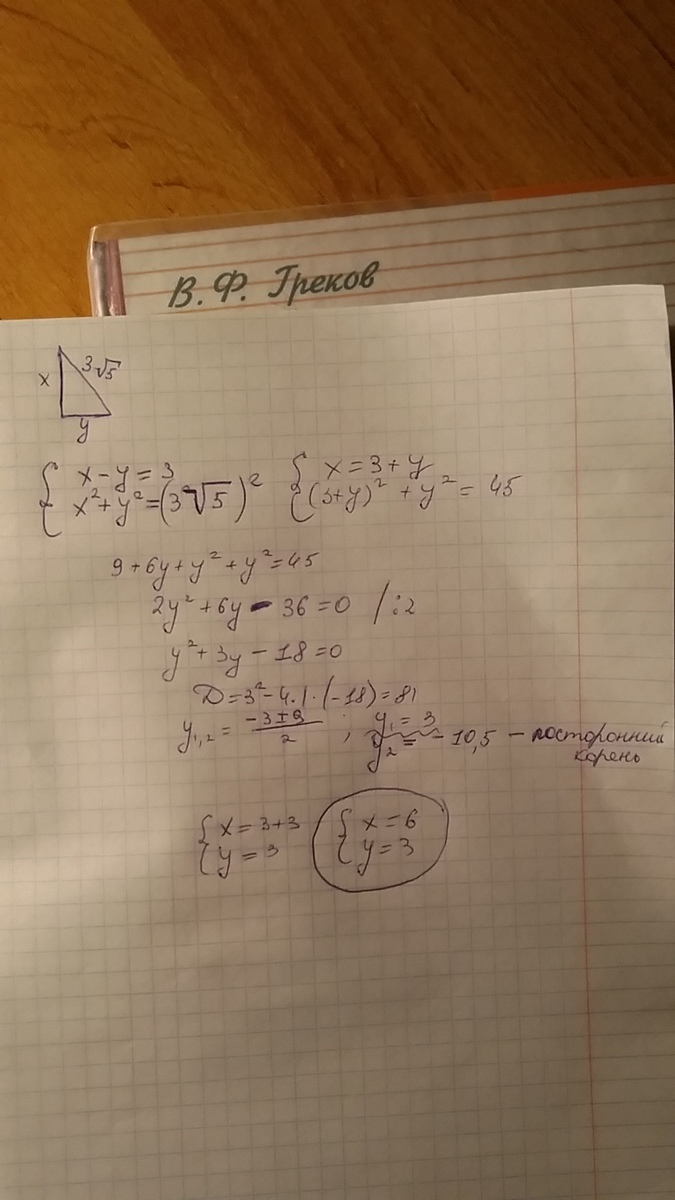 В. Ф. Греков
x
3√5
y
{ x - y = 3
x² + y² = (3√5)²
{ x = 3 + y
(3+y)² + y² = 45
9 + 6y + y² + y² = 45
2y² + 6y - 36 = 0 /:2
y² + 3y - 18 = 0
D = 3² - 4·1·(-18) = 81
y₁,₂ = (-3 ± 9)/2 ; y₁ = 3
y₂ = -10,5 - посторонний
корень
{ x = 3+3
y = 3
{ x = 6
y = 3